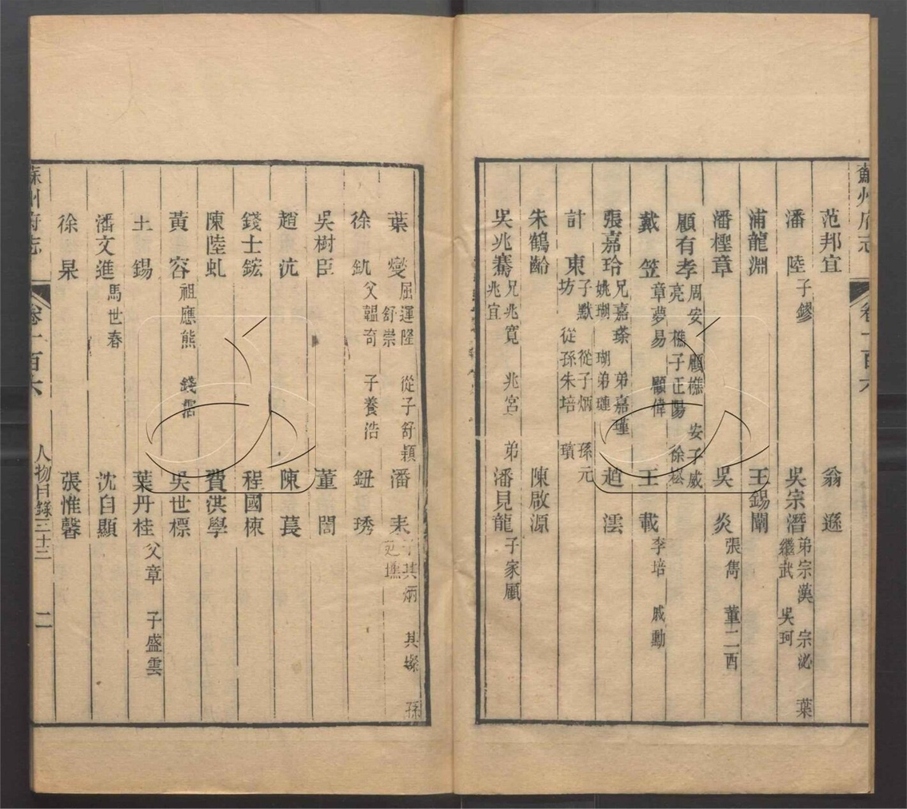 蘇州府志 卷一百六
范邦宜 翁遜
潘陸 子鏐 吳宗潛 弟宗漢 宗泌 葉繼武 吳珂
浦龍淵 王錫闡
潘檉章 吳炎 張雋 董二酉
顧有孝 周安 顧樵 安子威 亮 樵子正陽 徐崧
戴笠 章夢易 顧偉 王載 李培 戚勳
張嘉玲 兄嘉瑹 弟嘉瑾 姚瑚 瑚弟璉 趙澐
計東 子默 從子炳 孫元坊 從孫朱培 璸
朱鶴齡 陳啟源
吳兆騫 兄兆寬 兆宮 弟兆宜 潘見龍 子家願
葉燮 屈運隆 從子舒穎 舒崇 潘耒 子其炳 其燦 孫
徐釚 父韞奇 子養浩 鈕琇
吳樹臣 董誾
趙沆 陳萇
錢士鋐 程國棟
陳陸虬 費洪學
黃容 祖應熊 錢霑 吳世標
王錫 葉丹桂 父章 子盛雲
潘文進 馬世春 沈自顯
徐杲 張惟馨
蘇州府志 卷一百六 人物目錄三十三 二